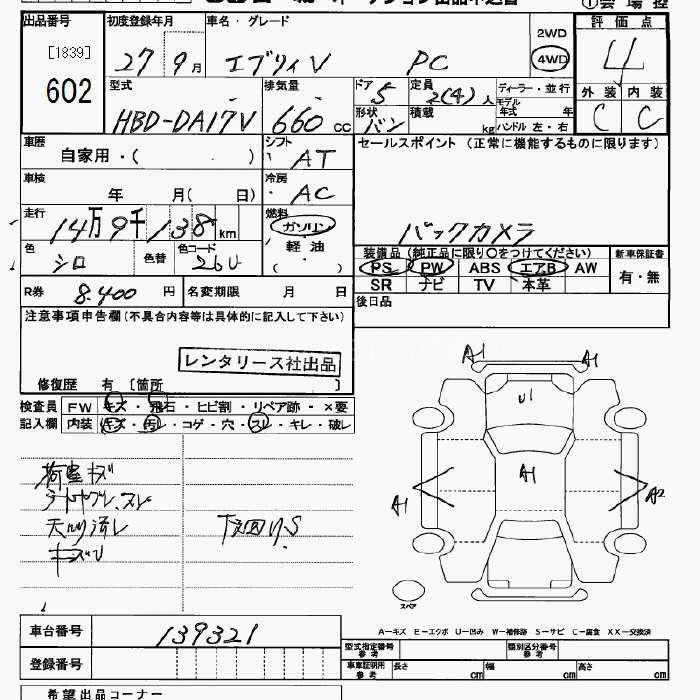 出品番号 初度登録年月 車名・グレード 2WD 評価点
[1839] 27年9月 エブリィV PC 4WD 4
602
型式 排気量 ドア 5 定員 2(4)人 ディーラー・並行 外装 内装
HBD-DA17V 660 cc 形状 バン 積載 kg モデル年式 年 C C
ハンドル 左・右
車歴 自家用・( ) シフト AT セールスポイント (正常に機能するものに限ります)
車検 年 月( 日) 冷房 AC
走行 14万9千138km 燃料 ガソリン バックカメラ
色 シロ 色替 色コード 26U 軽油 ( )
装備品 (純正品に限り○をつけてください) 新車保証書
PS PW ABS エアB AW 有・無
SR ナビ TV 本革
R券 8,400 円 名変期限 月 日 後日品
注意事項申告欄 (不具合内容等は具体的に記入して下さい)
レンタリース社出品
修復歴 有 [箇所 ]
検査員 FW キズ・飛石・ヒビ割・リペア跡・×要
記入欄 内装 キズ・汚レ・コゲ・穴・スレ・キレ・破レ
A1 A1
U1
A1
A1 A2
荷室キズ
天内汚レ 下廻りS
キズU
スペア
A-キズ E-エクボ U-凹み W-補修跡 S-サビ C-腐食 XX-交換済
車台番号 139321
型式指定番号 参考 類別区分番号 参考
登録番号 車庫証明用 参考 長さ cm 幅 cm 高さ cm
希望出品コーナー